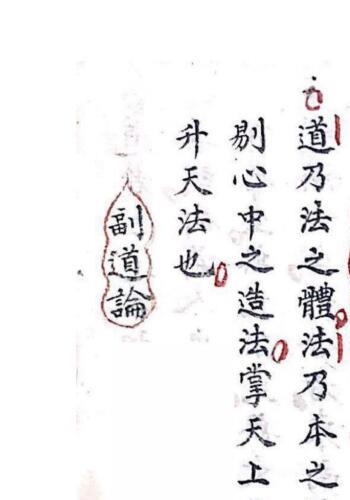 道乃法之體法乃本之
剔心中之造法掌天上
升天法也
副道論